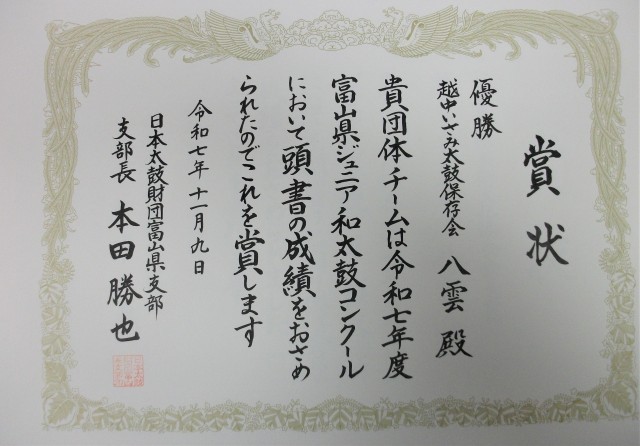 賞状
優勝
越中いさみ太鼓保存会 八雲 殿
貴団体チームは令和七年度
富山県ジュニア和太鼓コンクール
において頭書の成績をおさめ
られたのでこれを賞します
令和七年十一月九日
日本太鼓財団富山県支部
支部長 本田勝也